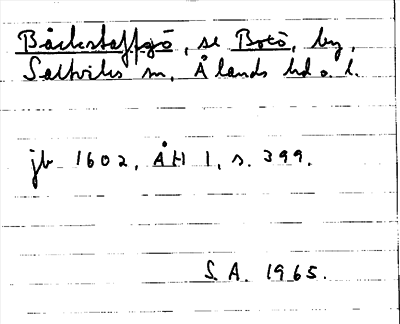 Båckstaffzö, se Botö, by,
Saltviks sn, Ålands hd o. l.
jb 1602, ÅH 1, s. 399.
S.A. 1965.